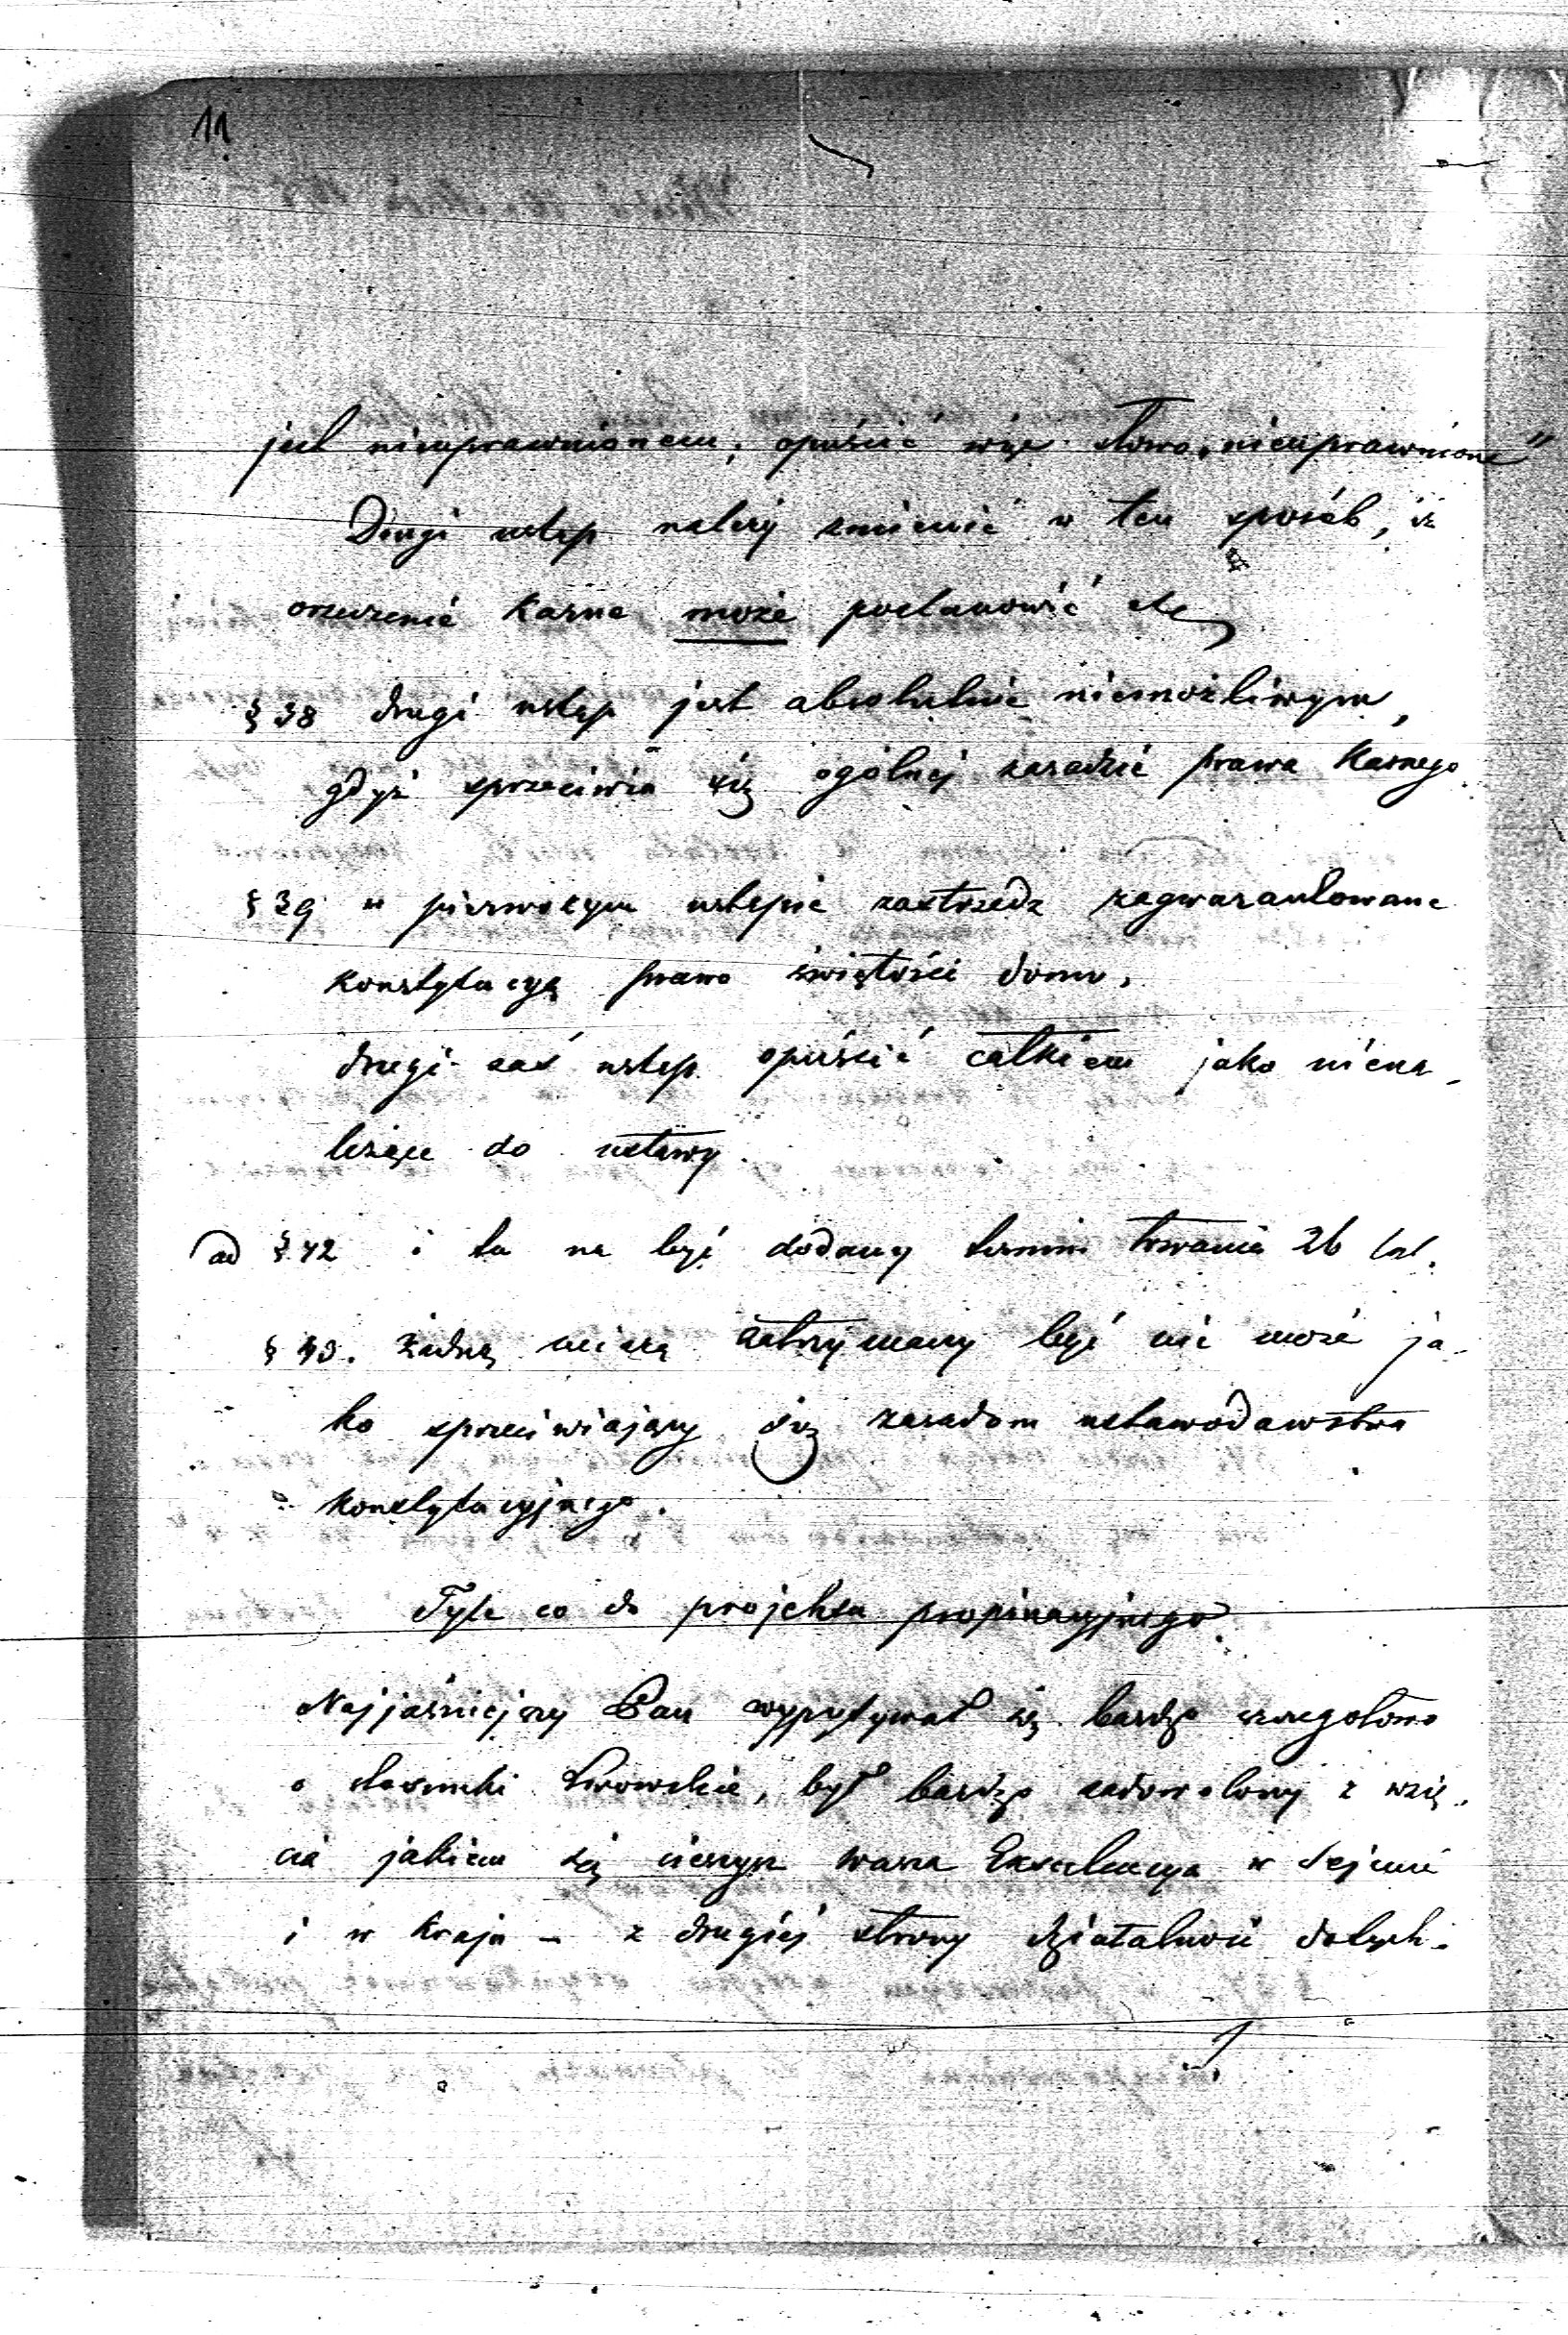 11
jest nieuprawnionem; opuścić więc słowo „nieuprawnione"
Drugi ustęp należy zmienić w ten sposób, iż
orzeczenie karne może postanowić etc
§ 38 drugi ustęp jest absolutnie niemożliwym,
gdyż sprzeciwia się ogólnej zasadzie prawa karnego.
§ 39 w pierwszym ustępie zastrzedz zagwarantowane
konstytucyą prawo świętości domu,
drugi zaś ustęp opuścić całkiem jako niena-
leżące do ustawy.
ad § 42 i tu ma być dodany termin trwania 26 lat.
§ 43. żadną miarą utrzymany być nie może ja-
ko sprzeciwiający się zasadom ustawodawstwa
konstytucyjnego.
Tyle co do projektu propinacyjnego.
Najjaśniejszy Pan wypytywał się bardzo szczegółowo
o stosunki Lwowskie, był bardzo zadowolony z wzię-
cia jakiem się cieszysz Wasza Excelencya w Sejmie
i w kraju – z drugiéj strony działalność dotych-